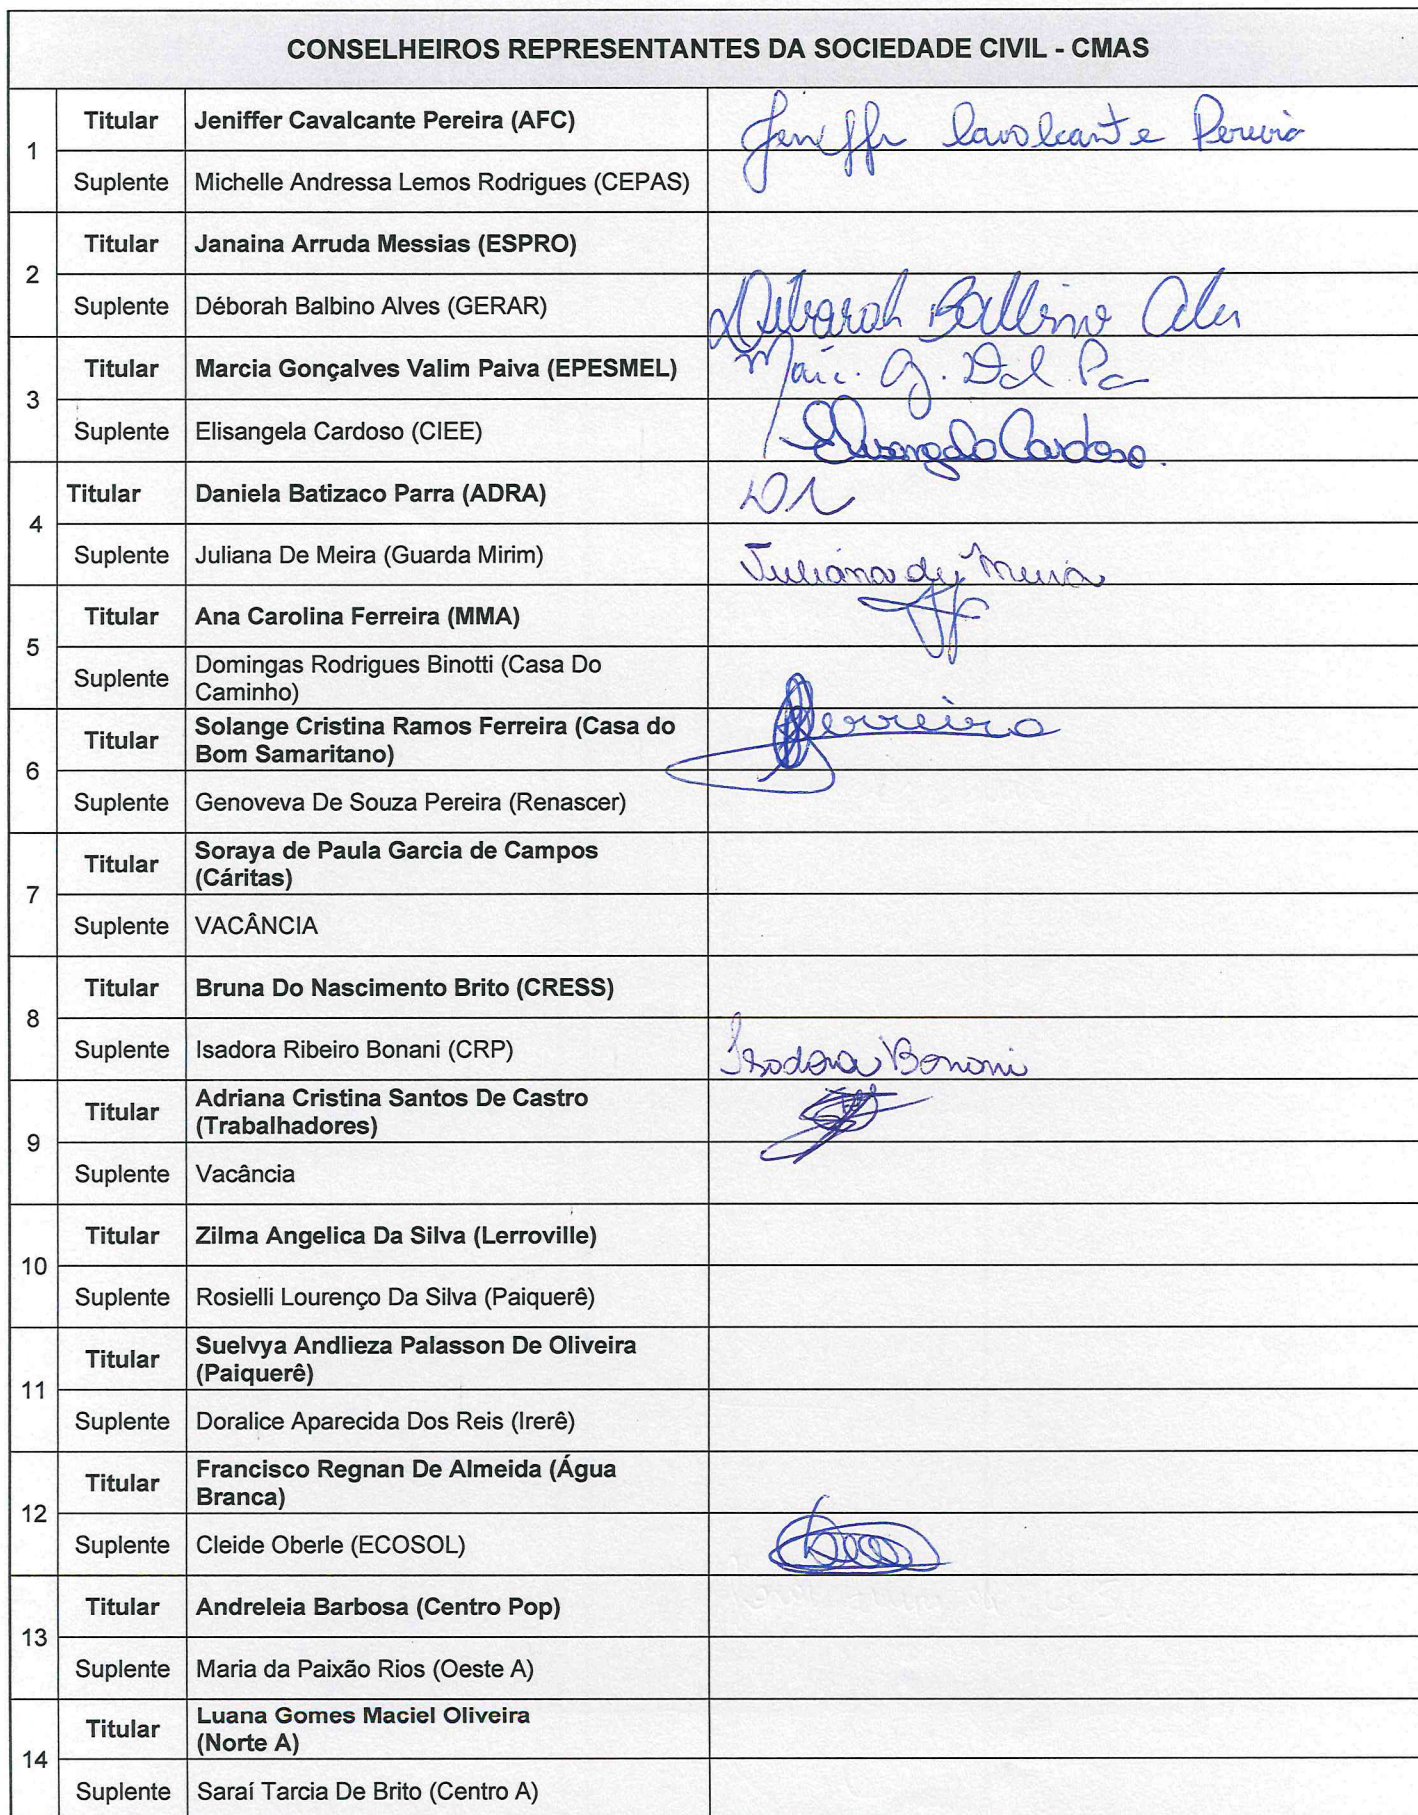 CONSELHEIROS REPRESENTANTES DA SOCIEDADE CIVIL - CMAS
1
Titular Jeniffer Cavalcante Pereira (AFC) Jeniffr Cavalcante Pereira
Suplente Michelle Andressa Lemos Rodrigues (CEPAS)
2
Titular Janaina Arruda Messias (ESPRO)
Suplente Déborah Balbino Alves (GERAR) Déborah Balbino Alves
3
Titular Marcia Gonçalves Valim Paiva (EPESMEL)
Suplente Elisangela Cardoso (CIEE) Elisangela Cardoso.
4
Titular Daniela Batizaco Parra (ADRA)
Suplente Juliana De Meira (Guarda Mirim) Juliana de Meira
5
Titular Ana Carolina Ferreira (MMA)
Suplente Domingas Rodrigues Binotti (Casa Do
Caminho)
6
Titular Solange Cristina Ramos Ferreira (Casa do
Bom Samaritano) Ferreira
Suplente Genoveva De Souza Pereira (Renascer)
7
Titular Soraya de Paula Garcia de Campos
(Cáritas)
Suplente VACÂNCIA
8
Titular Bruna Do Nascimento Brito (CRESS)
Suplente Isadora Ribeiro Bonani (CRP) Isadora Bonani
9
Titular Adriana Cristina Santos De Castro
(Trabalhadores)
Suplente Vacância
10
Titular Zilma Angelica Da Silva (Lerroville)
Suplente Rosielli Lourenço Da Silva (Paiquerê)
11
Titular Suelvya Andlieza Palasson De Oliveira
(Paiquerê)
Suplente Doralice Aparecida Dos Reis (Irerê)
12
Titular Francisco Regnan De Almeida (Água
Branca)
Suplente Cleide Oberle (ECOSOL)
13
Titular Andreleia Barbosa (Centro Pop)
Suplente Maria da Paixão Rios (Oeste A)
14
Titular Luana Gomes Maciel Oliveira
(Norte A)
Suplente Saraí Tarcia De Brito (Centro A)